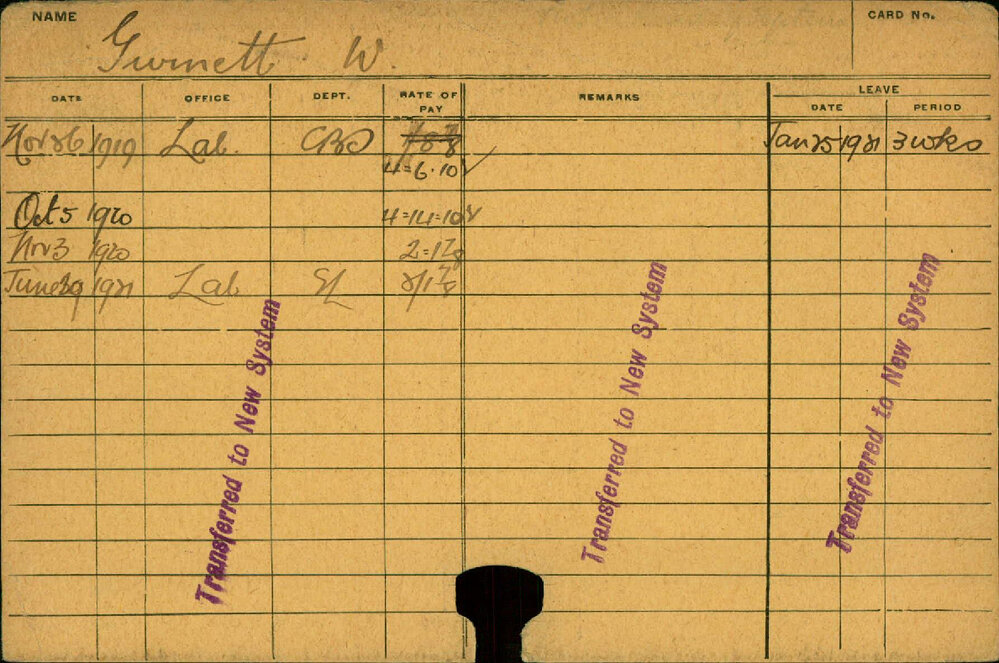 NAME
CARD No.
Gurnett W.
DATE OFFICE DEPT. RATE OF PAY REMARKS LEAVE
DATE PERIOD
Nov 26 1919 Lab. Jan 25 1921 3 wks
4=6.10 ✓
Oct 5 1920 4=14=10 ✓
Nov 3 1920
June 29 1921 Lab
Transferred to New System
Transferred to New System
Transferred to New System